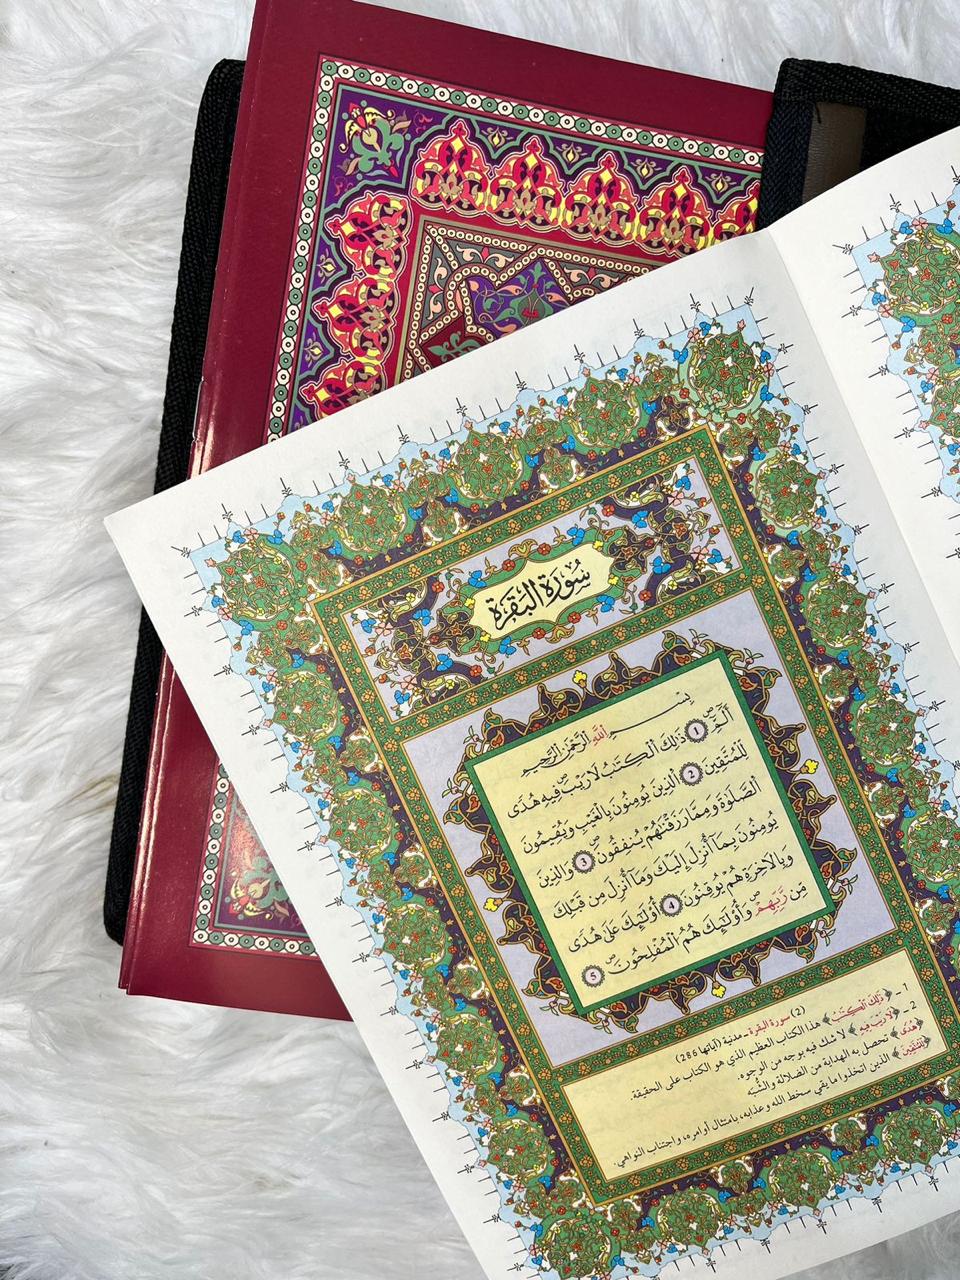 سُورَةُ الْبَقَرَةِ
بِسْمِ اللَّهِ الرَّحْمَٰنِ الرَّحِيمِ
الٓمٓ ۝1 ذَٰلِكَ الْكِتَٰبُ لَا رَيْبَ فِيهِ هُدًى
لِّلْمُتَّقِينَ ۝2 الَّذِينَ يُؤْمِنُونَ بِالْغَيْبِ وَيُقِيمُونَ
الصَّلَوٰةَ وَمِمَّا رَزَقْنَٰهُمْ يُنفِقُونَ ۝3 وَالَّذِينَ
يُؤْمِنُونَ بِمَآ أُنزِلَ إِلَيْكَ وَمَآ أُنزِلَ مِن قَبْلِكَ
وَبِالْأَخِرَةِ هُمْ يُوقِنُونَ ۝4 أُوْلَٰٓئِكَ عَلَىٰ هُدًى
مِّن رَّبِّهِمْ وَأُوْلَٰٓئِكَ هُمُ الْمُفْلِحُونَ ۝5
(2) سورة البقرة ـ مدنية (آياتها 286)
1 ـ ﴿ذَٰلِكَ الْكِتَٰبُ﴾ هذا الكتاب العظيم الذي هو الكتاب على الحقيقة.
2 ـ ﴿لَا رَيْبَ فِيهِ﴾ لا شك فيه بوجه من الوجوه.
﴿هُدًى﴾ تحصل به الهداية من الضلالة والشُّبَه
﴿لِّلْمُتَّقِينَ﴾ الذين اتخذوا ما يقي سخط الله وعذابه، بامتثال أوامره، واجتناب النواهي.